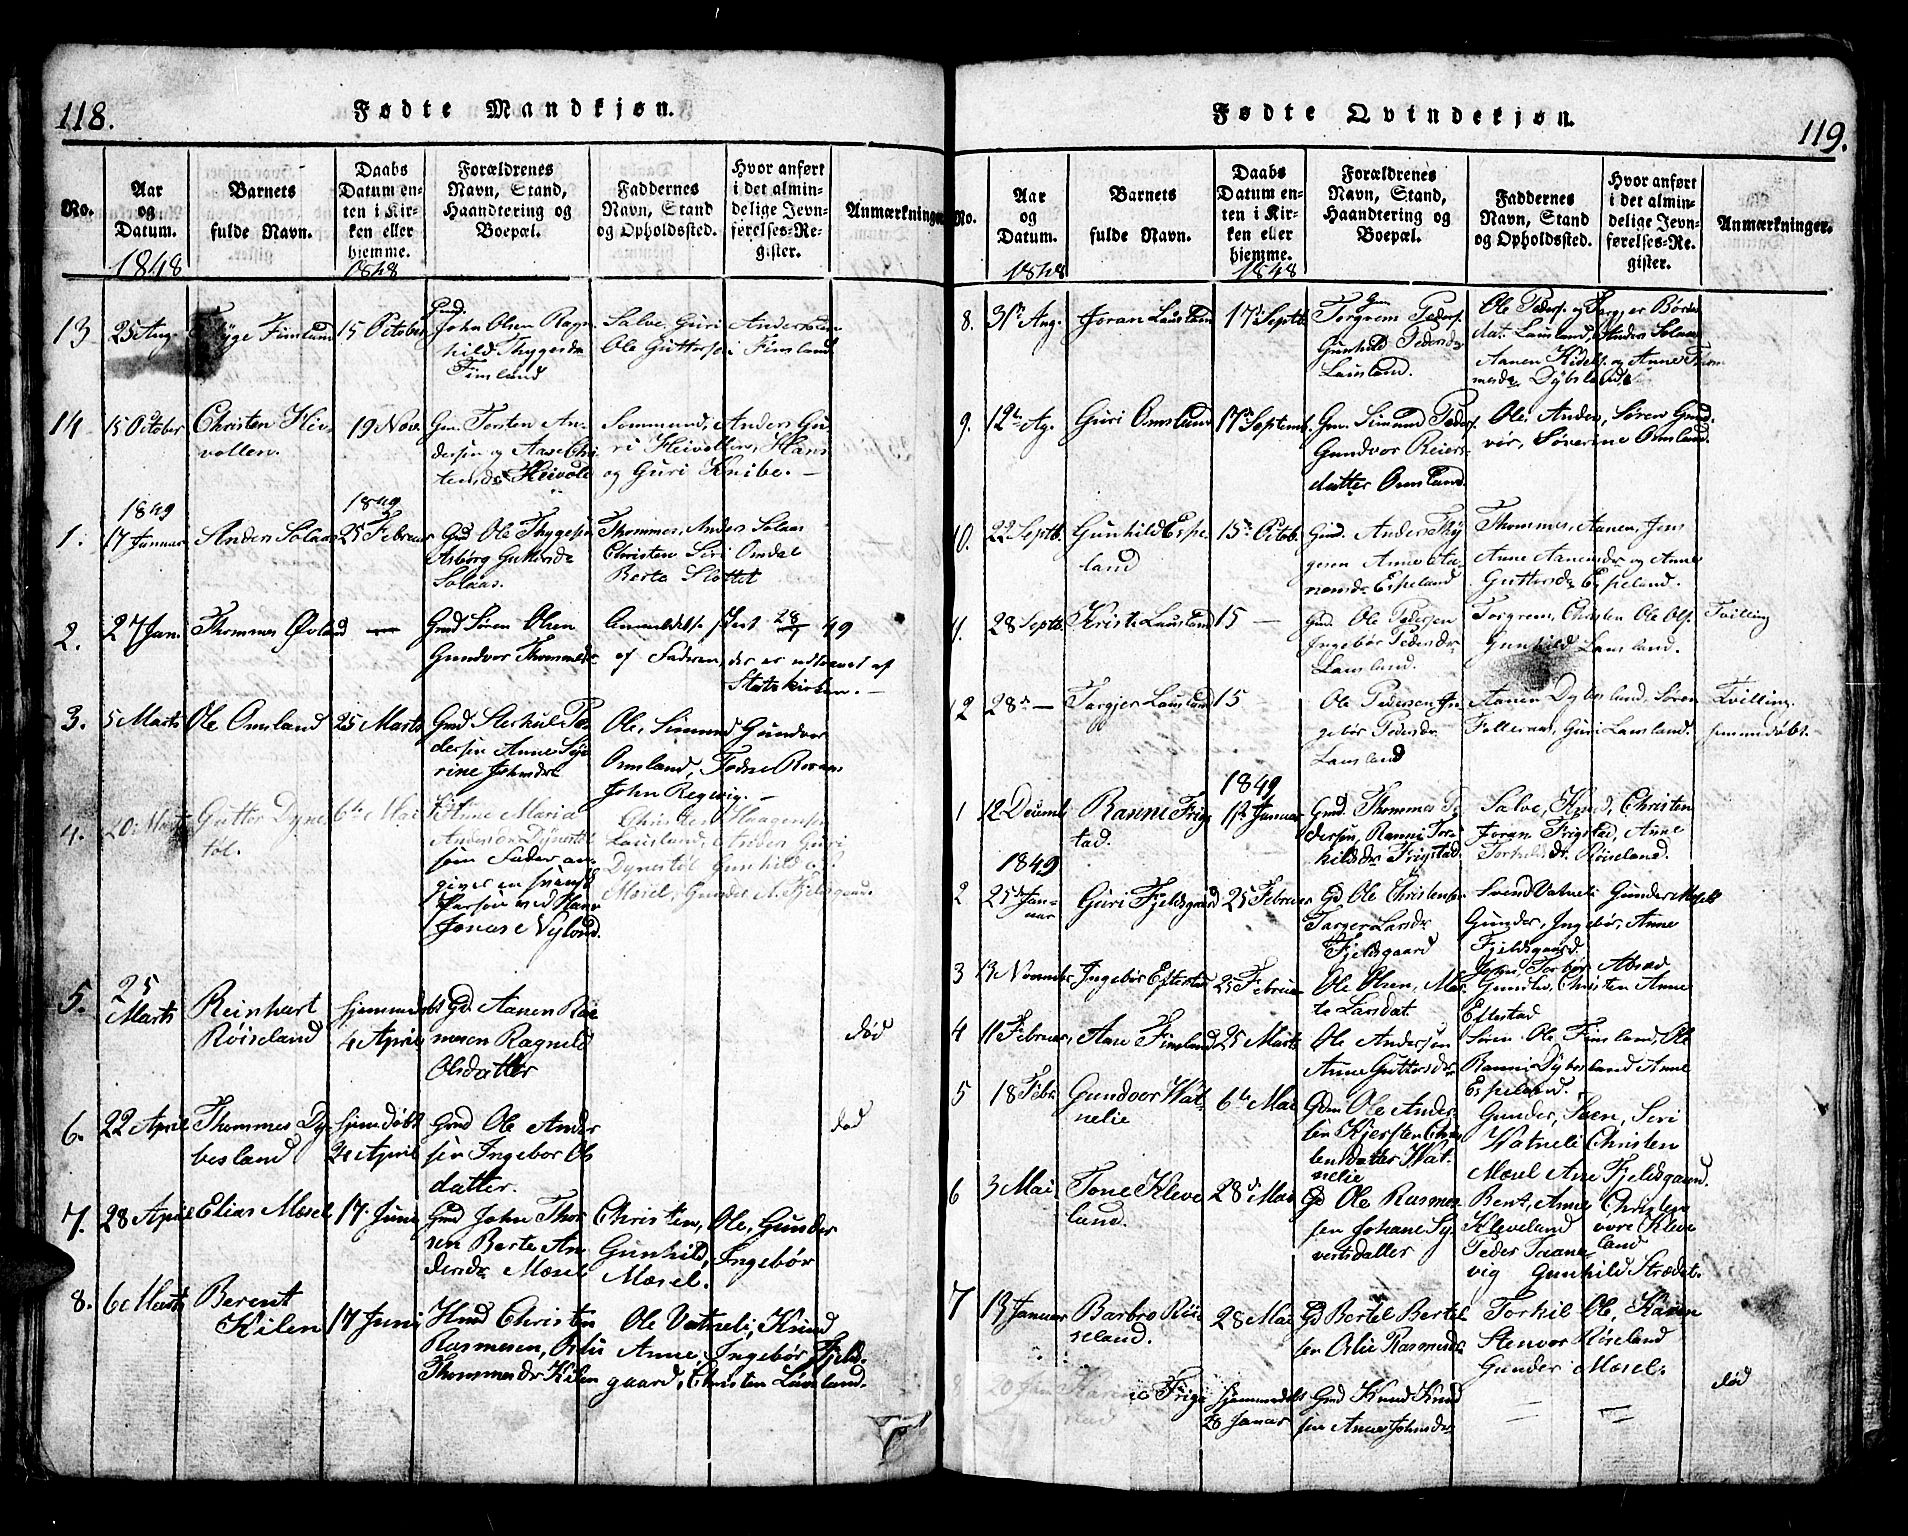 118.
Fødte Mandkjøn.
No.
Aar
og
Datum.
1848
Barnets
fulde Navn.
Daabs
Datum en-
ten i Kir-
ken eller
hjemme.
1848
Forældrenes
Navn, Stand,
Haandtering og
Boepæl.
Faddernes
Navn, Stand
og Opholdssted.
Hvor anført
i det almin-
delige Jevn-
førelses-Re-
gister.
Anmærkninger
13
25 Aug.
Tyge Fimland
15 October
Gmd.
John Olsen Ragn
hild Thygesdr
Fimland
Salve, Guri Anders
Ole Guttorsen i Fimland
14
15 October
Christen Hei-
vollen.
19 Nov.
Gm. Torsten An-
dersen og Aase Chri
tensdr Heivoll
Sommund, Anders Gu-
ri Heivollen, Hans
og Guri Knibe. —
1849
1849
1.
17 Januar
Anders Solaas
25 Februar
Gmd Ole Thygesen
Asborg Guttorsdr
Solaas.
Thommes, Anders Solaas
Christen Siri Omdal
Berta Slottet
2.
27 Jan.
Thommes Øvland
—
Gmd Sören Olsen
Gundvor Thommesdr
Anmeldelse skeet 28/7 49
af Faderen, der er udtraadt af
Statskirken. —
3.
5 Marts
Ole Omland
25 Marts
Gmd Sterkul Pe-
dersen Anne Sey
rine Johnsdr
Ole, Simund Gundvor
Omsland, Tedne Roraas
John Regevig. —
4.
20 Marts
Guttor Dyne
tøl.
6te Mai
Anne Maria
Andersdr Dynestøl
som Fader an-
giver en svensk
Person ved Navn
Jonas E Nylund.
Christen Haagensen
Lausland, Anders Guri
Dynestøl Gunhild
Mæsel, Gunder A. Fjelsgaard
5.
25
Marts
Reinhart
Røiseland
hjemmedøbt
4 April
Gd. Aanen Ras
mesen Ragnild
Olsdatter
død
6.
22 April
Thommes Dy-
besland
hjemmedøbt
24 April
Gmd Ole Ander
sen Ingebor Ols
datter.
død
7.
28 April
Elias Mæsel
17. Juni
Gmd John Thor
sen Berte An-
dersdr Mæsel
Christen, Ole, Gunder
Gunhild, Ingebør
Mæsel.
8.
6 Marts
Berent
Kilen
17 Juni
Hmd Christen
Rasmesen, Oslu
Thommesdr Kilen
Ole Vatneli, Knud
Anne, Ingebør Fjeld-
gaard, Christen Lausland.
119.
Fødte Qvindekjøn.
No.
Aar
og
Datum.
1848
Barnets
fulde Navn.
Daabs
Datum en-
ten i Kir-
ken eller
hjemme.
1848
Forældrenes
Navn, Stand,
Haandtering og
Boepæl.
Faddernes
Navn, Stand
og Opholdssted.
Hvor anført
i det almin-
delige Jevn-
førelses-Re-
gister.
Anmærkninger.
8.
31te Aug.
Joran Lausland
17de Septb.
Gm
Torgrem Peders.
Gunhild Pedersdr
Lausland.
Ole Peders. og Torger Børes
dat. Lausland, Anders Solaas
Aanen Kidels. og Anne Thom
mesdr Dybsland.
9.
12te Ag.
Guri Omsland
17de Septemb.
Gm. Simund Peders.
Gundvor Reiers-
datter Omsland
Ole, Anders, Søren Gund-
vor, Søverine Omsland.
10.
22 Septb.
Gunhild Espe-
land
15de Octob.
Gmd. Anders Thy
gesen Anne Aa-
nensdr Espeland
Thommes, Aanen, Jens
Anne Arnensdr og Anne
Guttorsdr Espeland.
11.
28 Septb.
Kristi Lausland
15 —
Gmd. Ole Pedersen
Ingebør Pedersdr
Lausland.
Torgrem, Christen Ole Ols.
Gunhild Lausland.
Tvilling
12
28de —
Targjer Lausland
15
Ole Pedersen, In-
gebør Pedersdr
Lausland
Aanen Dybesland, Søren
Folleraas, Guri Lausland.
Tvilling.
hjemmedøbt. —
1849
1
12 Decemb
Ranni Frig
stad.
1ste Januar
Gmd. Thommes Pe
dersen, Ranni Tor-
kildsdr Frigstad.
Salve, Knud, Christen
Joran Frigstad, Anne
Torkildsdr. Røiseland.
1849
2
25de Jan-
uar
Guri Fjeldsgaard
25 Februar
Gd Ole Christensen
Targer Larsdr
Fjeldsgaard
Svend Vatneli Gunder Mæsel
Gunder, Ingebør, Anne
Fjeldsgaard.
3
13 November
Ingebør Eftestad
25 Februar
Ole Olsen, Mar-
te Larsdat.
John, Torbør Abrad
Gunder, Christen Anne
Eftestad
4
11 Februar
Aase Fimsland
25 Marts
Ole Andersen
Anne Guttorsdr
Søren Ole Fimsland, Ole
Ranni Dybesland Anne
Espeland.
5
18 Febr
Gundvor Wat-
nelie
6te Mai
Gdm Ole Ander-
sen Kjersten Chris
tensdatter Wat-
nelie
Gunder, Soen, Seri
Watneli Christen
Mæsel Ane Fjeldsgaard.
6
3 Mai
Tone Kleve
land.
28de Mai
Gd Ole Rasmes
sen Johane Sy
vertsdatter
Bent, Anne Christen
Kleveland øvre Kleve
land
Peder Taane-
vig Gunhild Strædet.
7
13 Januar
Barbro Røi-
seland.
28 Mai
Gd Bertel Bertel
sen Oslu Rasmesdr
Torkil Ole, Karen
Stenvor Røseland
Gunder Mæsel.
8
20 Jan
Karine Frig-
stad
hjemmedøbt
20 Januar
Gmd Knud Knud
sen Anne Johnsdr
død